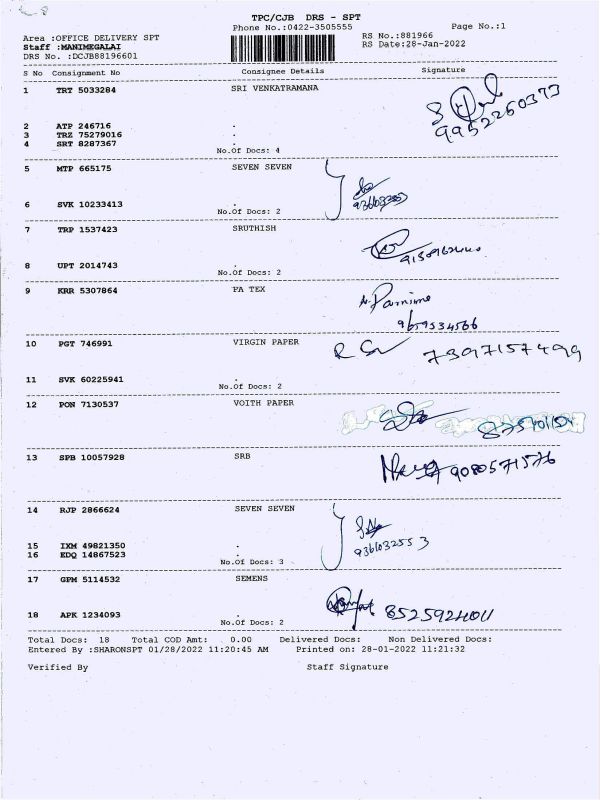 TPC/CJB DRS - SPT
Phone No.:0422-3505555 Page No.:1
Area :OFFICE DELIVERY SPT RS No.:881966
Staff :MANIMEGALAI RS Date:28-Jan-2022
DRS No. :DCJB88196601
S No Consignment No Consignee Details Signature
1 TRT 5033284 SRI VENKATRAMANA
9952260373
2 ATP 246716 .
3 TRZ 75279016 .
4 SRT 8287367 .
No.Of Docs: 4
5 MTP 665175 SEVEN SEVEN
6 SVK 10233413 .
No.Of Docs: 2
7 TRP 1537423 SRUTHISH
8 UPT 2014743 .
No.Of Docs: 2
9 KRR 5307864 PA TEX
9659534566
10 PGT 746991 VIRGIN PAPER
7397157499
11 SVK 60225941 .
No.Of Docs: 2
12 PON 7130537 VOITH PAPER
13 SPB 10057928 SRB
9080571576
14 RJP 2866624 SEVEN SEVEN
15 IXM 49821350 .
9361032553
16 EDQ 14867523 .
No.Of Docs: 3
17 GPM 5114532 SEMENS
18 APK 1234093 .
8525924011
No.Of Docs: 2
Total Docs: 18 Total COD Amt: 0.00 Delivered Docs: Non Delivered Docs:
Entered By :SHARONSPT 01/28/2022 11:20:45 AM Printed on: 28-01-2022 11:21:32
Verified By Staff Signature